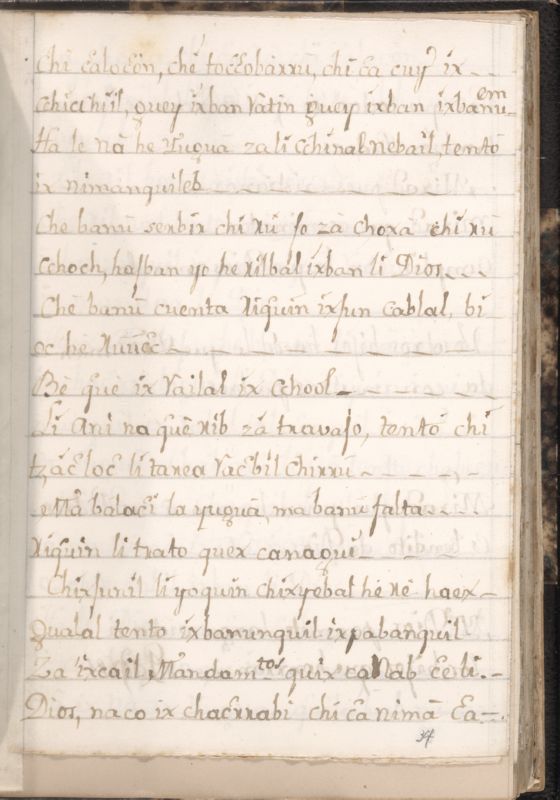 Chi ɛaloɛon, che tocɛobarru, chi ɛa cuy ix
cchicihuil, quey ixban vatin quey ixban ixbanu=em
Ha le na he Yuqua za li cchinal nebail, tento
ix nimanquileb
Che banu serbir chi xu jo za chora chi xu
cchoch, hasban yo he xilbal ixban li Dios
Che banu cuenta xiquin ixjun cablal, bi
oc he xuuɛ
Be que ix vailal ix cchool
Li ani na que rib za travajo, tento chi
tzaɛloɛ li tarea vaɛbil chirru
Ma balaɛi la yuqua, ma banu falta
xiquin li trato quex canaqui
Chixjunil li yoquin chixyebal he re haex
qualal tento ixbanunquil ixpabanquil
Za ixcail Mandam.tos quix canab ɛe li
Dios, naco ix chaɛrrabi chi ɛa nima ɛa=
34